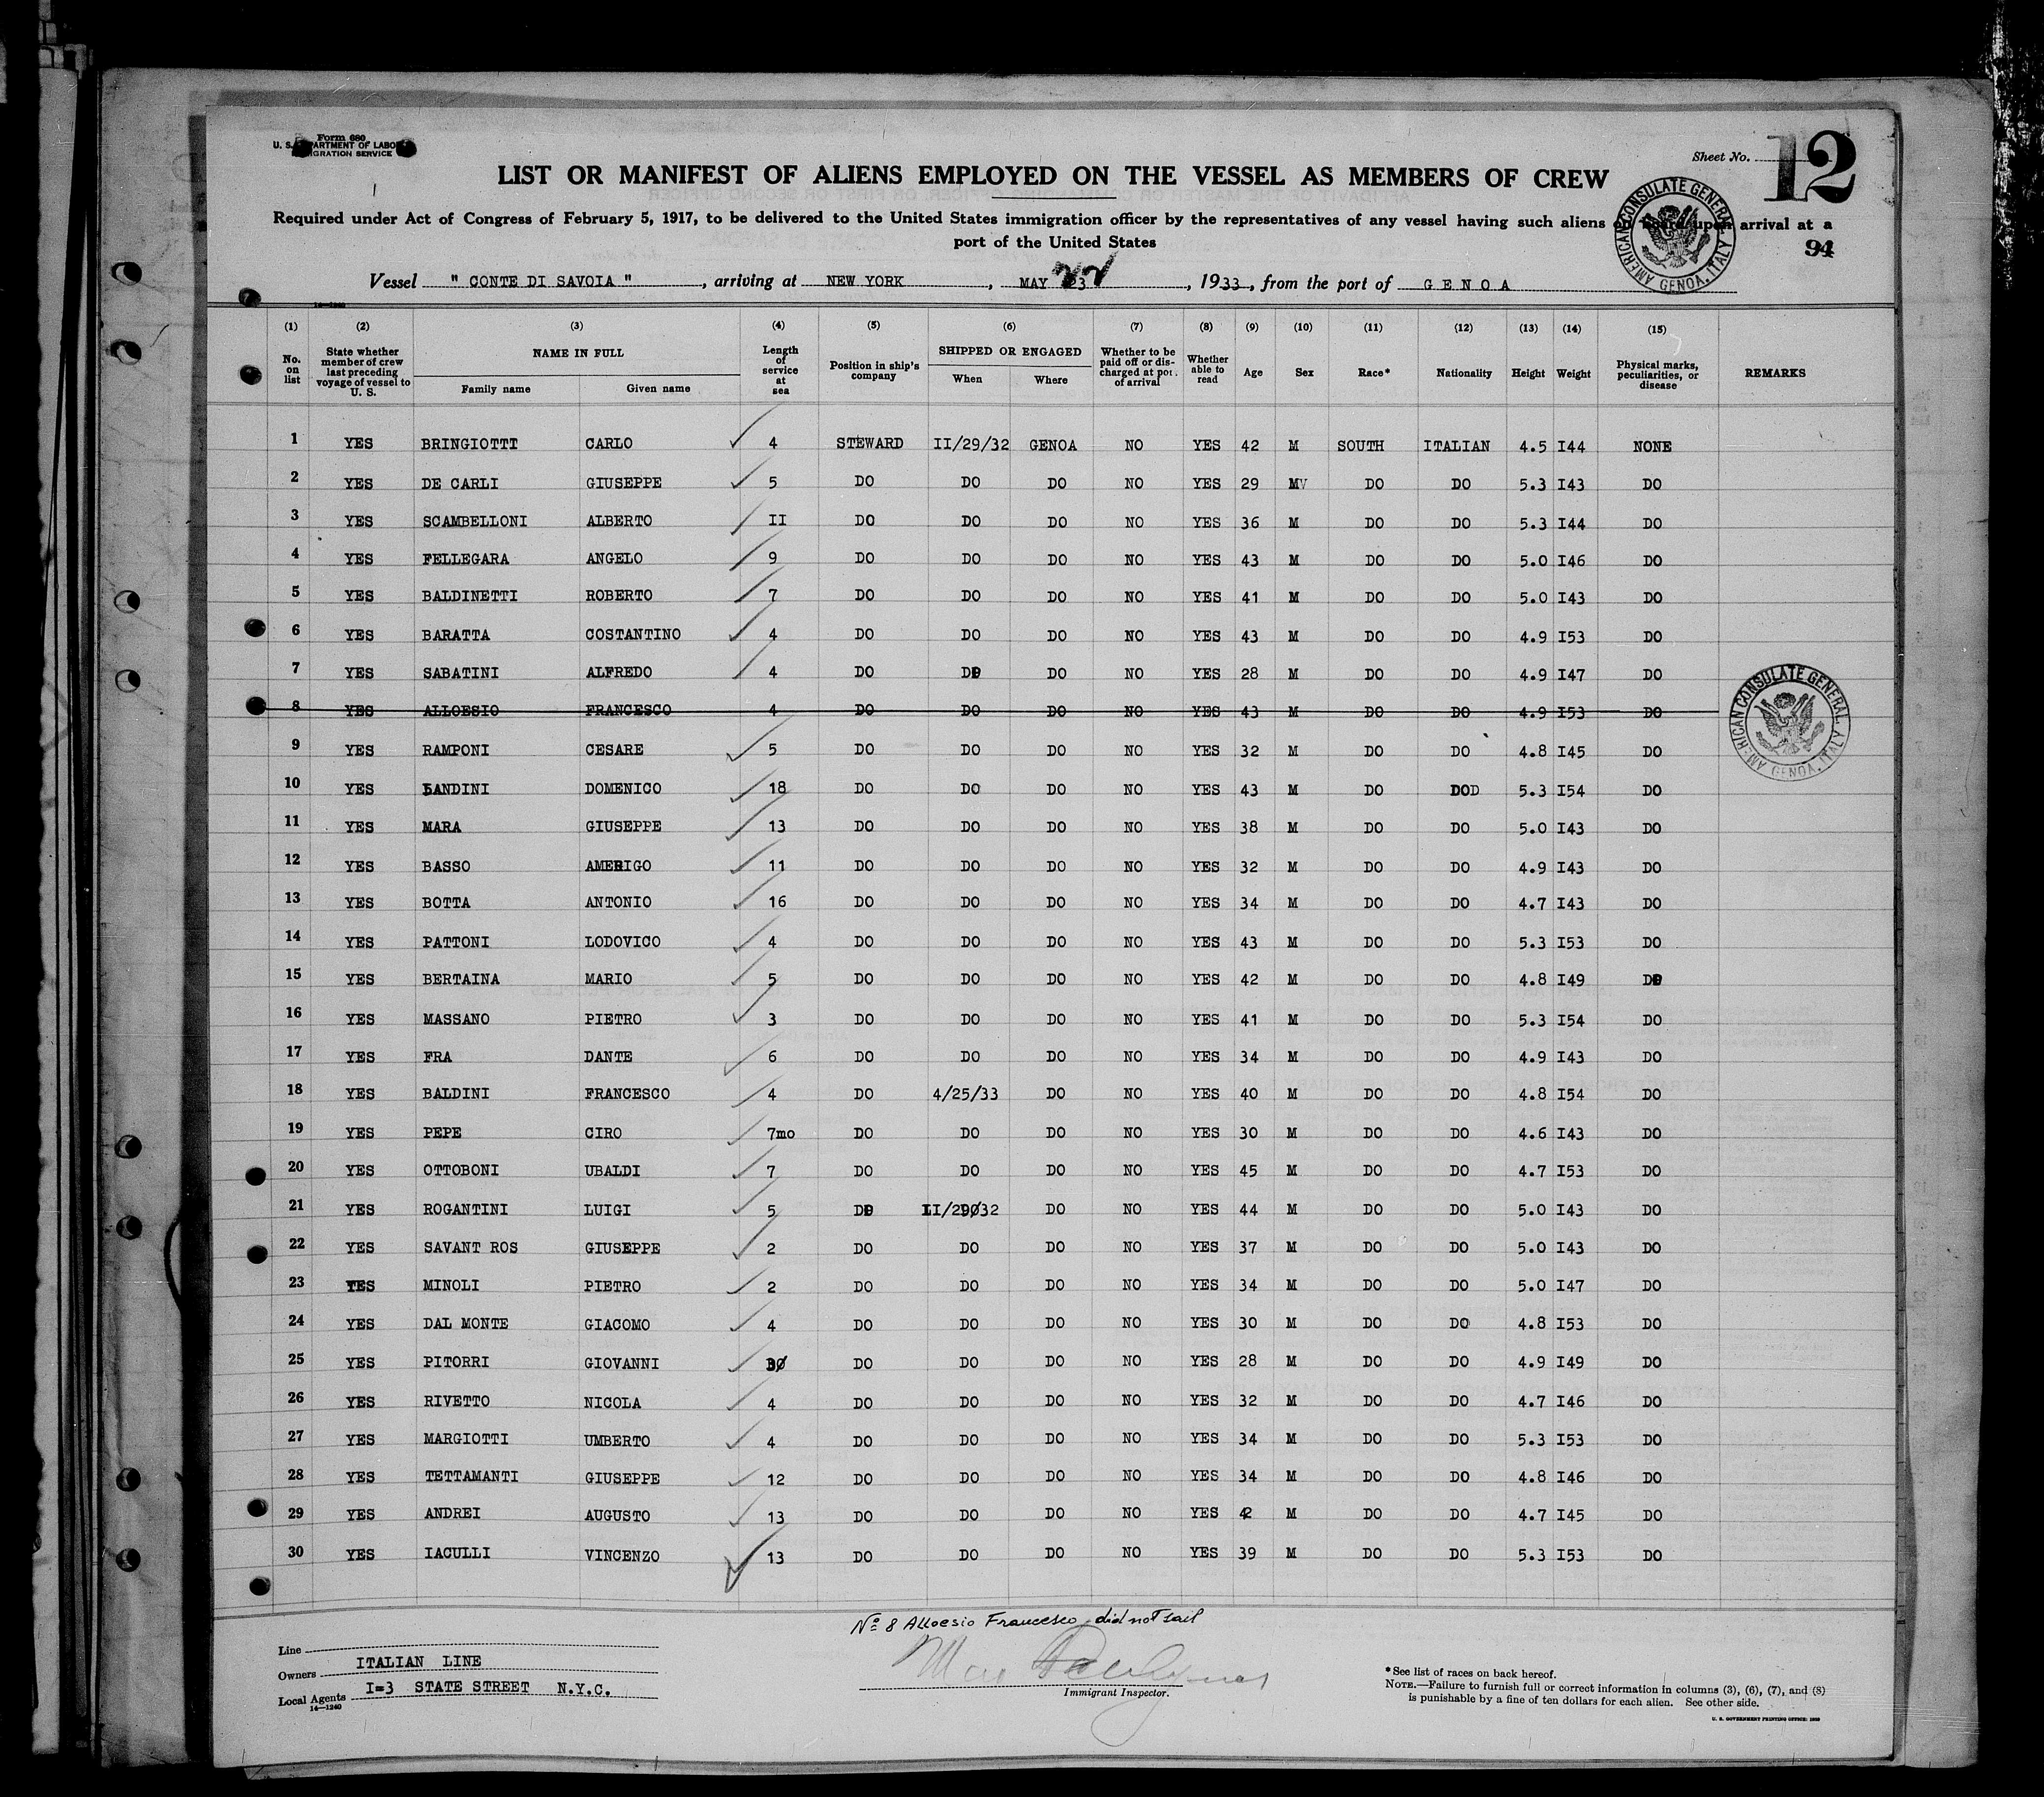 Form 680
U. S. DEPARTMENT OF LABOR
IMMIGRATION SERVICE
Sheet No. 12
LIST OR MANIFEST OF ALIENS EMPLOYED ON THE VESSEL AS MEMBERS OF CREW
Required under Act of Congress of February 5, 1917, to be delivered to the United States immigration officer by the representatives of any vessel having such aliens on board upon arrival at a
port of the United States
AMERICAN CONSULATE GENERAL. GENOA, ITALY
94
Vessel " CONTE DI SAVOIA ", arriving at NEW YORK, MAY 1933, from the port of GENOA
14-1240
(1) (2) (3) (4) (5) (6) (7) (8) (9) (10) (11) (12) (13) (14) (15)
No. on list | State whether member of crew last preceding voyage of vessel to U. S. | NAME IN FULL Family name Given name | Length of service at sea | Position in ship's company | SHIPPED OR ENGAGED When Where | Whether to be paid off or discharged at port of arrival | Whether able to read | Age | Sex | Race* | Nationality | Height | Weight | Physical marks, peculiarities, or disease | REMARKS
1 YES BRINGIOTTI CARLO 4 STEWARD II/29/32 GENOA NO YES 42 M SOUTH ITALIAN 4.5 I44 NONE
2 YES DE CARLI GIUSEPPE 5 DO DO DO NO YES 29 M DO DO 5.3 I43 DO
3 YES SCAMBELLONI ALBERTO II DO DO DO NO YES 36 M DO DO 5.3 I44 DO
4 YES FELLEGARA ANGELO 9 DO DO DO NO YES 43 M DO DO 5.0 I46 DO
5 YES BALDINETTI ROBERTO 7 DO DO DO NO YES 41 M DO DO 5.0 I43 DO
6 YES BARATTA COSTANTINO 4 DO DO DO NO YES 43 M DO DO 4.9 I53 DO
7 YES SABATINI ALFREDO 4 DO DO DO NO YES 28 M DO DO 4.9 I47 DO
8 YES ALLOESIO FRANCESCO 4 DO DO DO NO YES 43 M DO DO 4.9 I53 DO
AMERICAN CONSULATE GENERAL. GENOA, ITALY
9 YES RAMPONI CESARE 5 DO DO DO NO YES 32 M DO DO 4.8 I45 DO
10 YES LANDINI DOMENICO 18 DO DO DO NO YES 43 M DO DOD 5.3 I54 DO
11 YES MARA GIUSEPPE 13 DO DO DO NO YES 38 M DO DO 5.0 I43 DO
12 YES BASSO AMERIGO 11 DO DO DO NO YES 32 M DO DO 4.9 I43 DO
13 YES BOTTA ANTONIO 16 DO DO DO NO YES 34 M DO DO 4.7 I43 DO
14 YES PATTONI LODOVICO 4 DO DO DO NO YES 43 M DO DO 5.3 I53 DO
15 YES BERTAINA MARIO 5 DO DO DO NO YES 42 M DO DO 4.8 I49 DO
16 YES MASSANO PIETRO 3 DO DO DO NO YES 41 M DO DO 5.3 I54 DO
17 YES FRA DANTE 6 DO DO DO NO YES 34 M DO DO 4.9 I43 DO
18 YES BALDINI FRANCESCO 4 DO 4/25/33 DO NO YES 40 M DO DO 4.8 I54 DO
19 YES PEPE CIRO 7mo DO DO DO NO YES 30 M DO DO 4.6 I43 DO
20 YES OTTOBONI UBALDI 7 DO DO DO NO YES 45 M DO DO 4.7 I53 DO
21 YES ROGANTINI LUIGI 5 DO II/29/32 DO NO YES 44 M DO DO 5.0 I43 DO
22 YES SAVANT ROS GIUSEPPE 2 DO DO DO NO YES 37 M DO DO 5.0 I43 DO
23 YES MINOLI PIETRO 2 DO DO DO NO YES 34 M DO DO 5.0 I47 DO
24 YES DAL MONTE GIACOMO 4 DO DO DO NO YES 30 M DO DO 4.8 I53 DO
25 YES PITORRI GIOVANNI DO DO DO NO YES 28 M DO DO 4.9 I49 DO
26 YES RIVETTO NICOLA 4 DO DO DO NO YES 32 M DO DO 4.7 I46 DO
27 YES MARGIOTTI UMBERTO 4 DO DO DO NO YES 34 M DO DO 5.3 I53 DO
28 YES TETTAMANTI GIUSEPPE 12 DO DO DO NO YES 34 M DO DO 4.8 I46 DO
29 YES ANDREI AUGUSTO 13 DO DO DO NO YES 42 M DO DO 4.7 I45 DO
30 YES IACULLI VINCENZO 13 DO DO DO NO YES 39 M DO DO 5.3 I53 DO
Nº 8 Alloesio Francesco did not sail
Line
Owners ITALIAN LINE
Local Agents I=3 STATE STREET N.Y.C.
14-1240
Immigrant Inspector.
*See list of races on back hereof.
NOTE.—Failure to furnish full or correct information in columns (3), (6), (7), and (8)
is punishable by a fine of ten dollars for each alien. See other side.
U. S. GOVERNMENT PRINTING OFFICE: